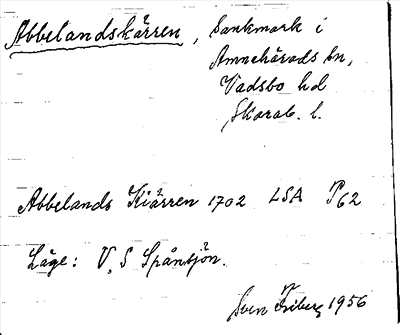 Abbelandskärren, Sankmark i
Amnehärads sn,
Vadsbo hd
Skarab. l.
Abbelands Kiärren 1702 LSA P62
Läge: V. S Spåntjön.
Sven Friberg 1956